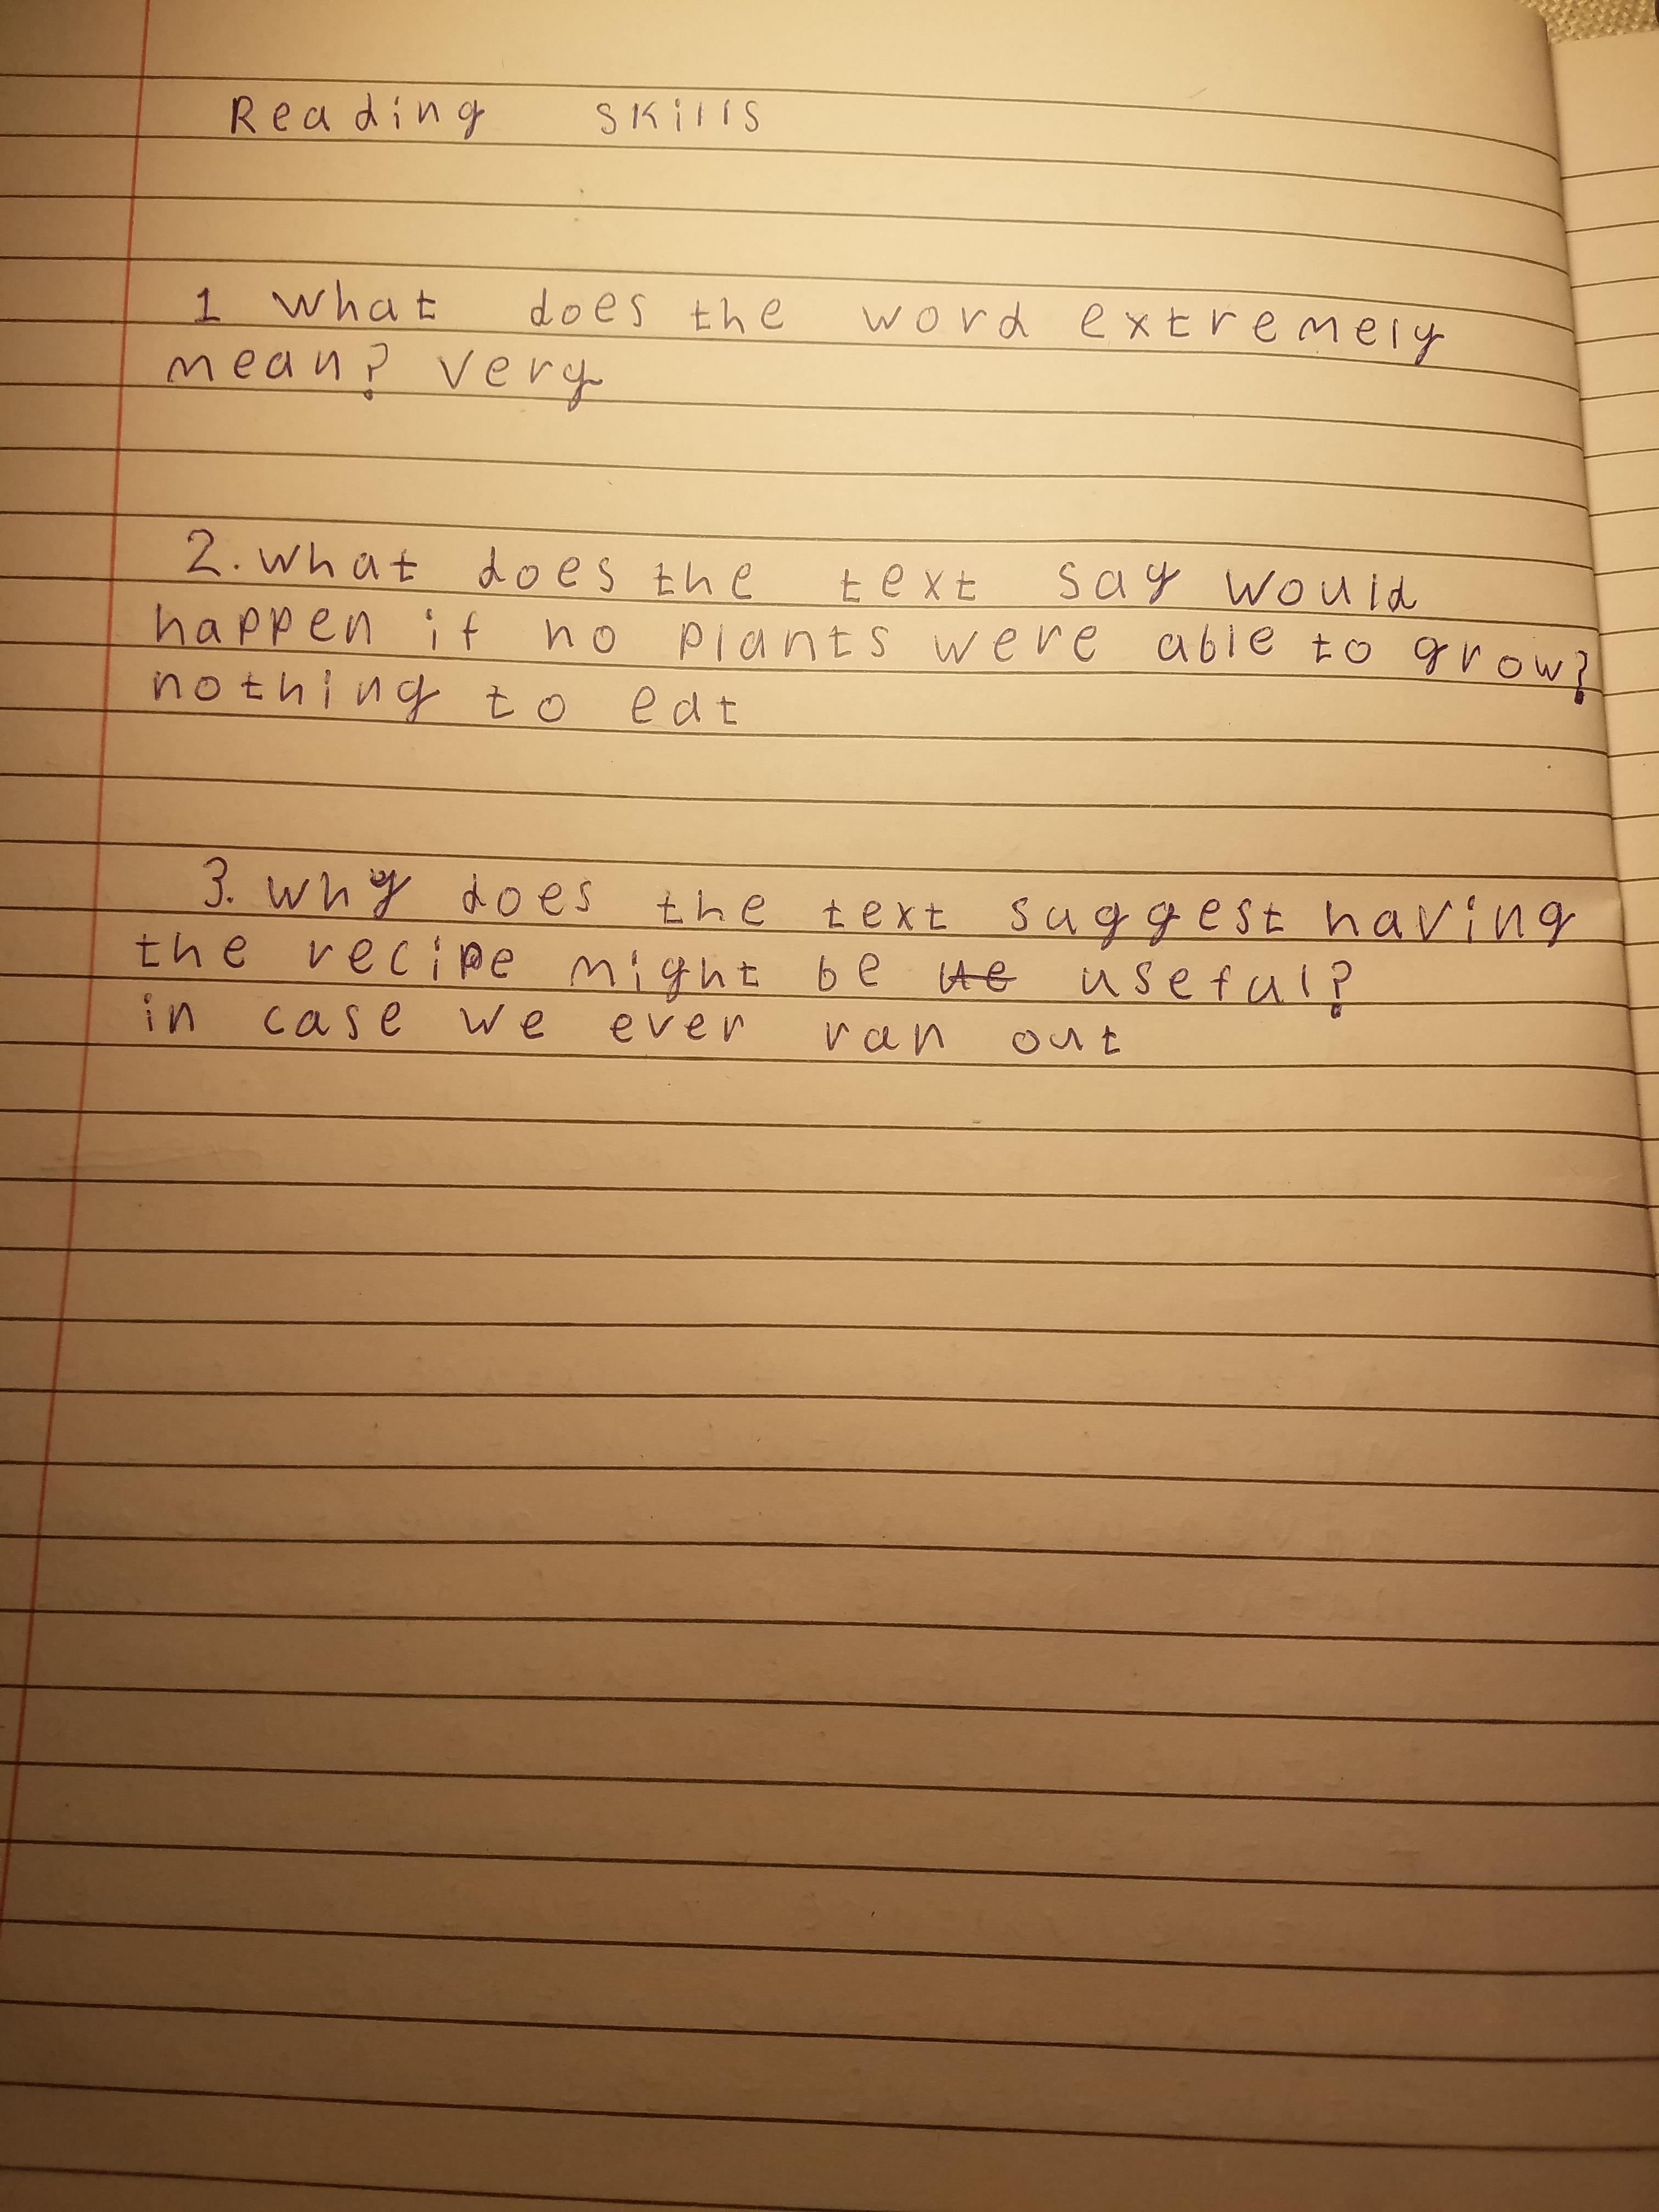 Reading skills
1 What does the word extremely
mean? very
2. What does the text say would
happen if no plants were able to grow?
nothing to eat
3. Why does the text suggest having
the recipe might be useful?
in case we ever ran out